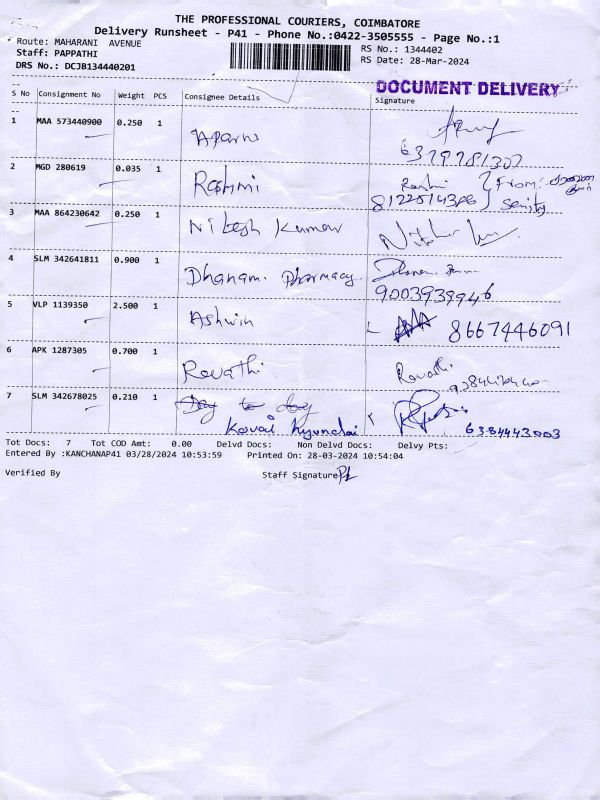 THE PROFESSIONAL COURIERS, COIMBATORE
Delivery Runsheet - P41 - Phone No.:0422-3505555 - Page No.:1
Route: MAHARANI AVENUE
RS No.: 1344402
Staff: PAPPATHI
RS Date: 28-Mar-2024
DRS No.: DCJB134440201
DOCUMENT DELIVERY
S No Consignment No Weight PCS Consignee Details Signature
1 MAA 573440900 0.250 1 Aparna
6379781302
2 MGD 280619 0.035 1 Rashmi Rashmi From:
Senity
3 MAA 864230642 0.250 1 Nitesh Kumar
4 SLM 342641811 0.900 1 Dhanam Pharmacy
9003939946
5 VLP 1139350 2.500 1 Ashwin 8667446091
6 APK 1287305 0.700 1 Revathi Revathi
7 SLM 342678025 0.210 1 Day to day
Kovai Hyundai 6384443003
Tot Docs: 7 Tot COD Amt: 0.00 Delvd Docs: Non Delvd Docs: Delvy Pts:
Entered By :KANCHANAP41 03/28/2024 10:53:59 Printed On: 28-03-2024 10:54:04
Verified By Staff Signature